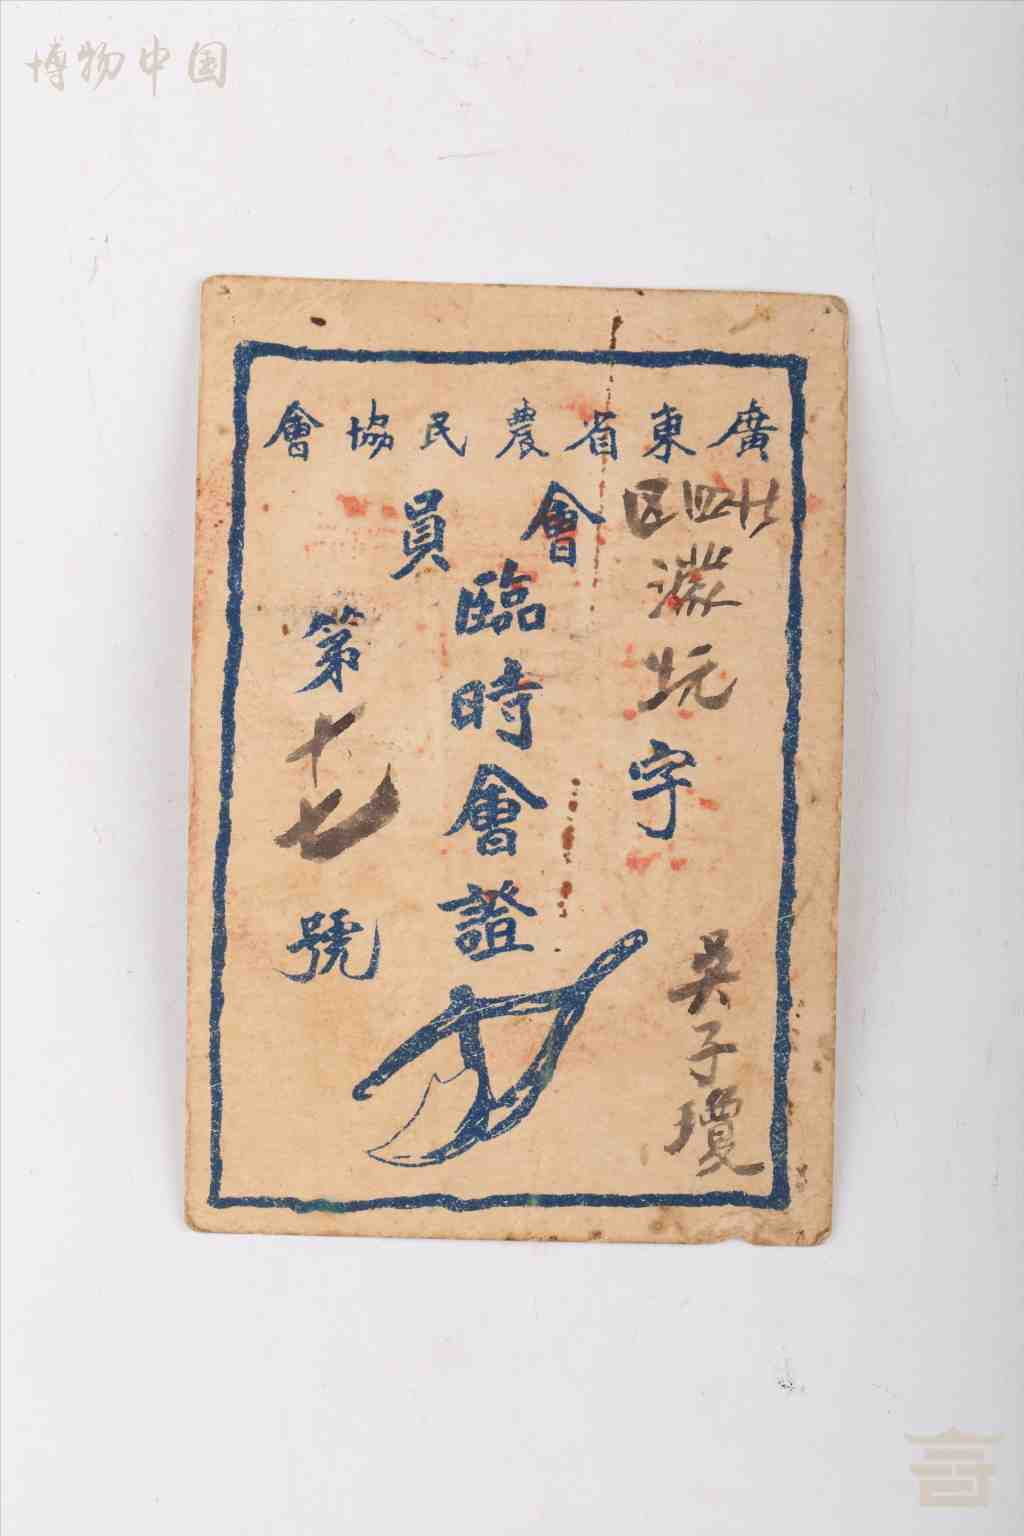 博物中国
廣東省農民協會
四區
坑字
吴子瓊
會員
臨時會證
第十七號